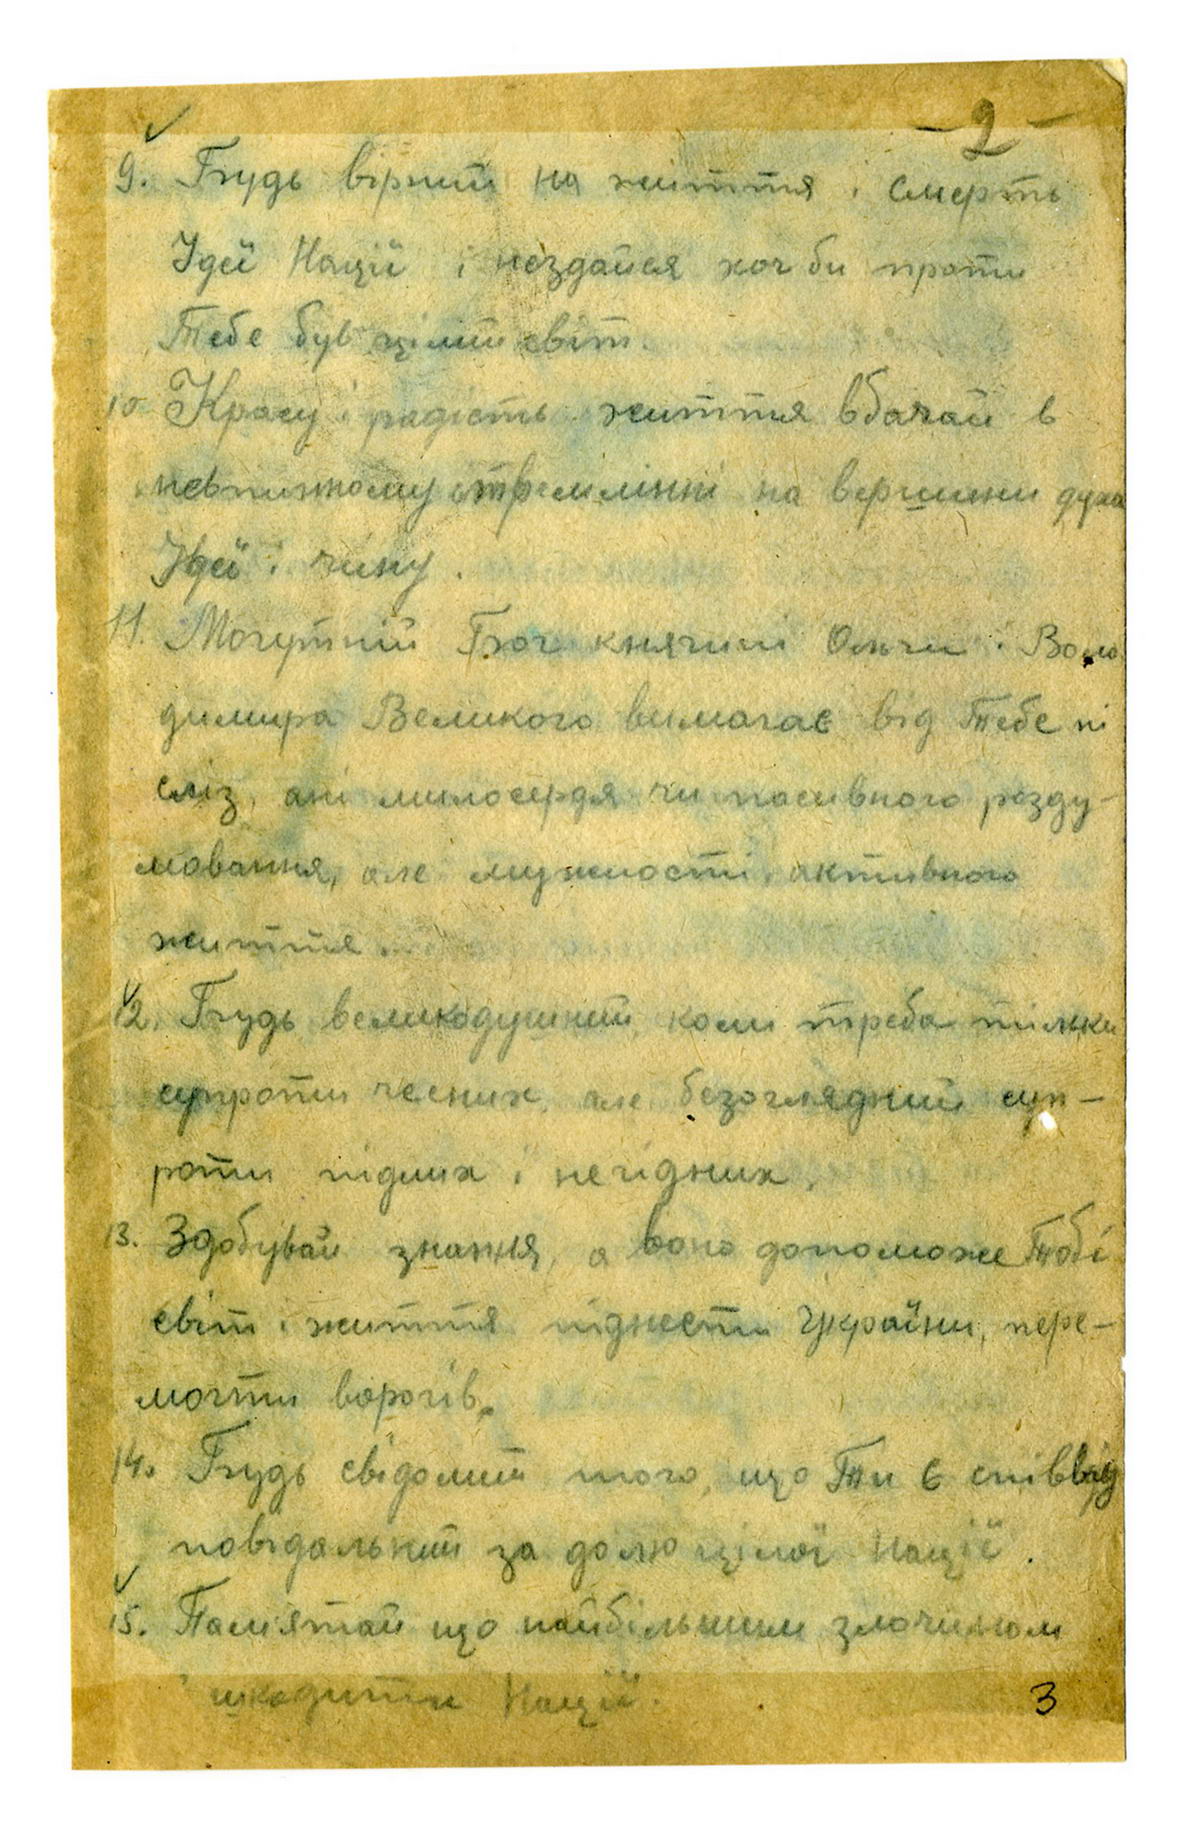 - 2 -
9. Будь вірний на життя і смерть
Ідеї Нації і нездайся хоч би проти
Тебе був цілий світ.
10 Красу і радість життя вбачай в
невпинному стремлінні на вершини духа
Ідеї і чину.
11. Могутній Бог княгині Ольги і Воло
димира Великого вимагає від Тебе ні
сліз, ані милосердя чи пасивного розду-
мовання, але мужности, активного
життя.
12. Будь великодушний, коли треба тільки
супроти чесних, але безоглядний суп-
роти підлих і негідних.
13. Здобувай знання, а воно допоможе Тобі
світ і життя піднести України, пере-
могти ворогів.
14. Будь свідомий того, що Ти є співвід
повідальний за долю цілої Нації.
15. Памятай що найбільшим злочином
шкодити Нації.
3